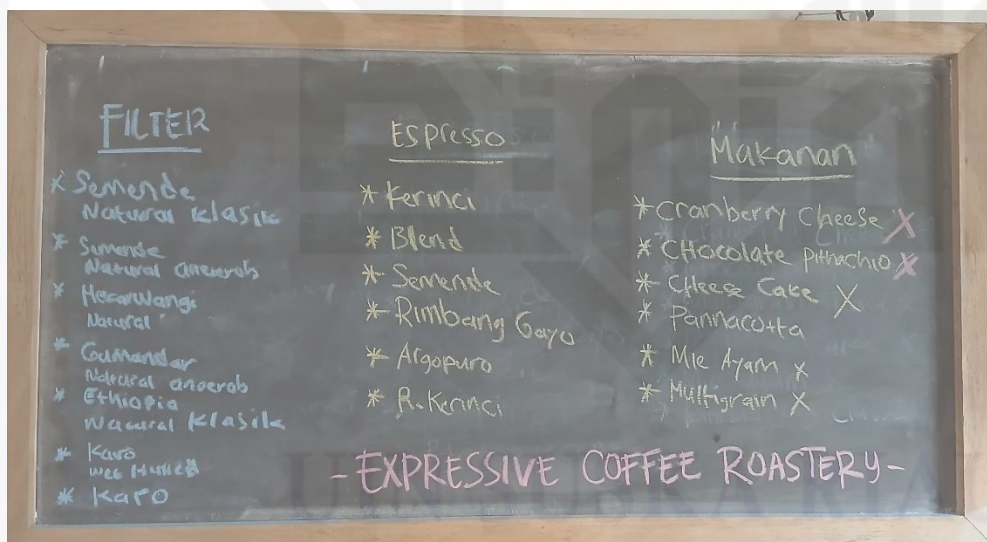 FILTER
* Semende
Natural Klasik
* Semende
Natural anaerob
* Mekarwangi
Natural
* Gumandar
Natural anaerob
* Ethiopia
Natural Klasik
* Karo
Wet Hulled
* Karo
Espresso
* Kerinci
* Blend
* Semende
* Rimbang Gayo
* Argopuro
* R. Kerinci
Makanan
* Cranberry Cheese X
* CHocolate Pithachio X
* CHeese Cake X
* Pannacotta
* Mie Ayam X
* Multigrain X
- EXPRESSIVE COFFEE ROASTERY -